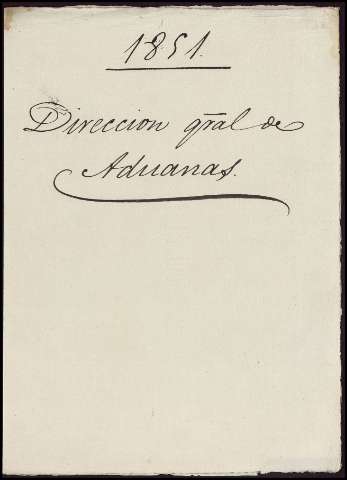 1851.
Direccion gral de
Aduanas.